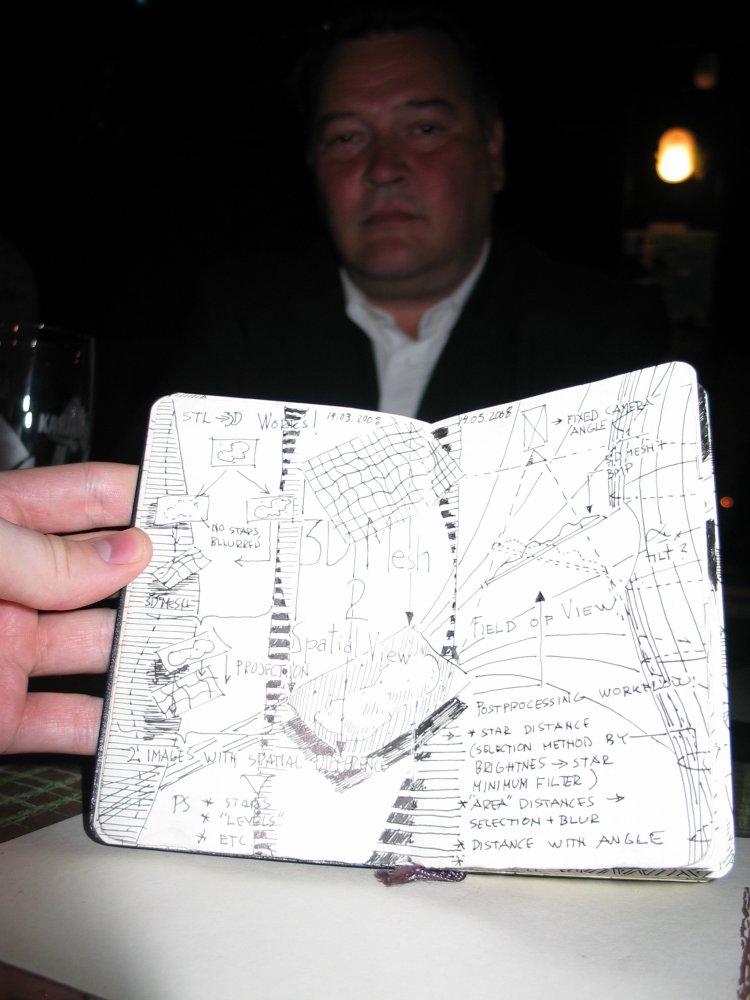 STL → 3D WORKS! 19.03.2008
NO STARS,
BLLURRED
3D MESH
PROJECTION
3D Mesh
2
Spatial View
2 IMAGES WITH SPATIAL DIFFERENCE
PS * STARS
* "LEVELS"
* ETC
19.05.2008
→ FIXED CAMERA
ANGLE
3D MESH +
BMP
TILT 2
FIELD OF VIEW
POSTPROCESSING WORKFLOW:
* STAR DISTANCE
(SELECTION METHOD BY
BRIGHTNES → STAR
MINIMUM FILTER)
* "AREA" DISTANCES →
SELECTION + BLUR
* DISTANCE WITH ANGLE